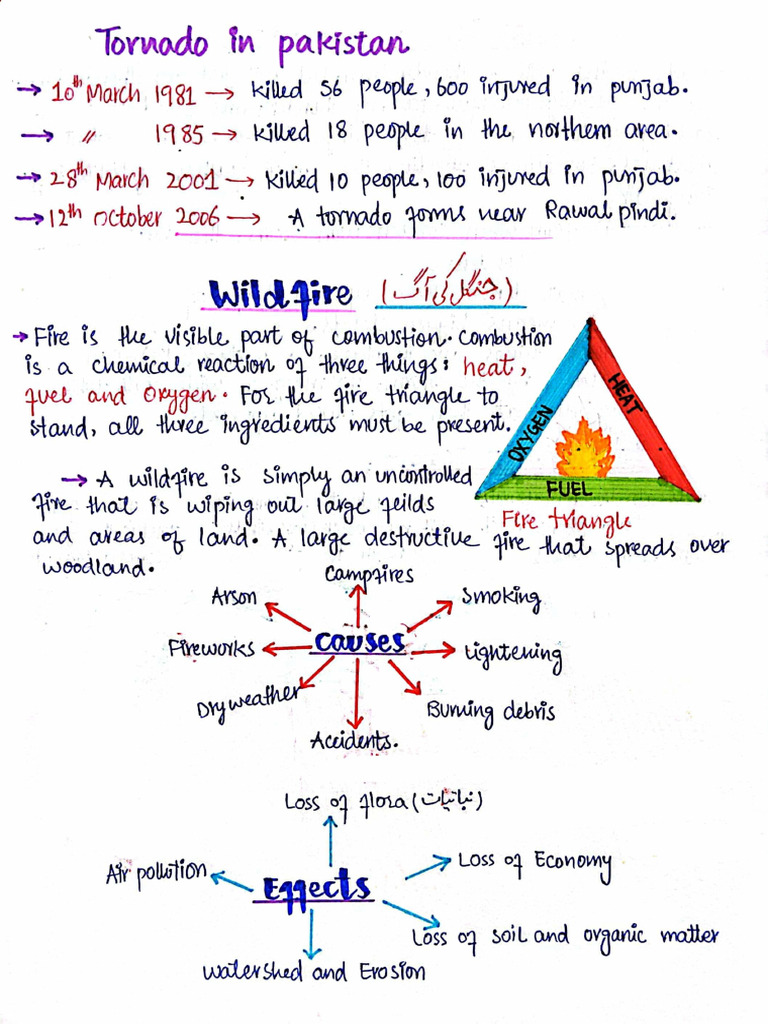 Tornado in pakistan
→ 10th March 1981 → killed 56 people, 600 injured in punjab.
→ " 1985 → killed 18 people in the northern area.
→ 28th March 2001 → killed 10 people, 100 injured in punjab.
→ 12th October 2006 → A tornado forms near Rawalpindi.
Wildfire (جنگل کی آگ)
→ Fire is the visible part of combustion. Combustion
is a chemical reaction of three things: heat,
fuel and Oxygen. For the fire triangle to
stand, all three ingredients must be present.
OXYGEN
HEAT
FUEL
Fire triangle
→ A wildfire is simply an uncontrolled
fire that is wiping out large feilds
and areas of land. A large destructive fire that spreads over
woodland.
Campfires
Arson
Smoking
Causes
Fireworks
Lightening
Dry weather
Burning debris
Accidents.
Loss of flora (نباتیات)
Air pollotion
Loss of Economy
Effects
Loss of soil and organic matter
Watershed and Erosion